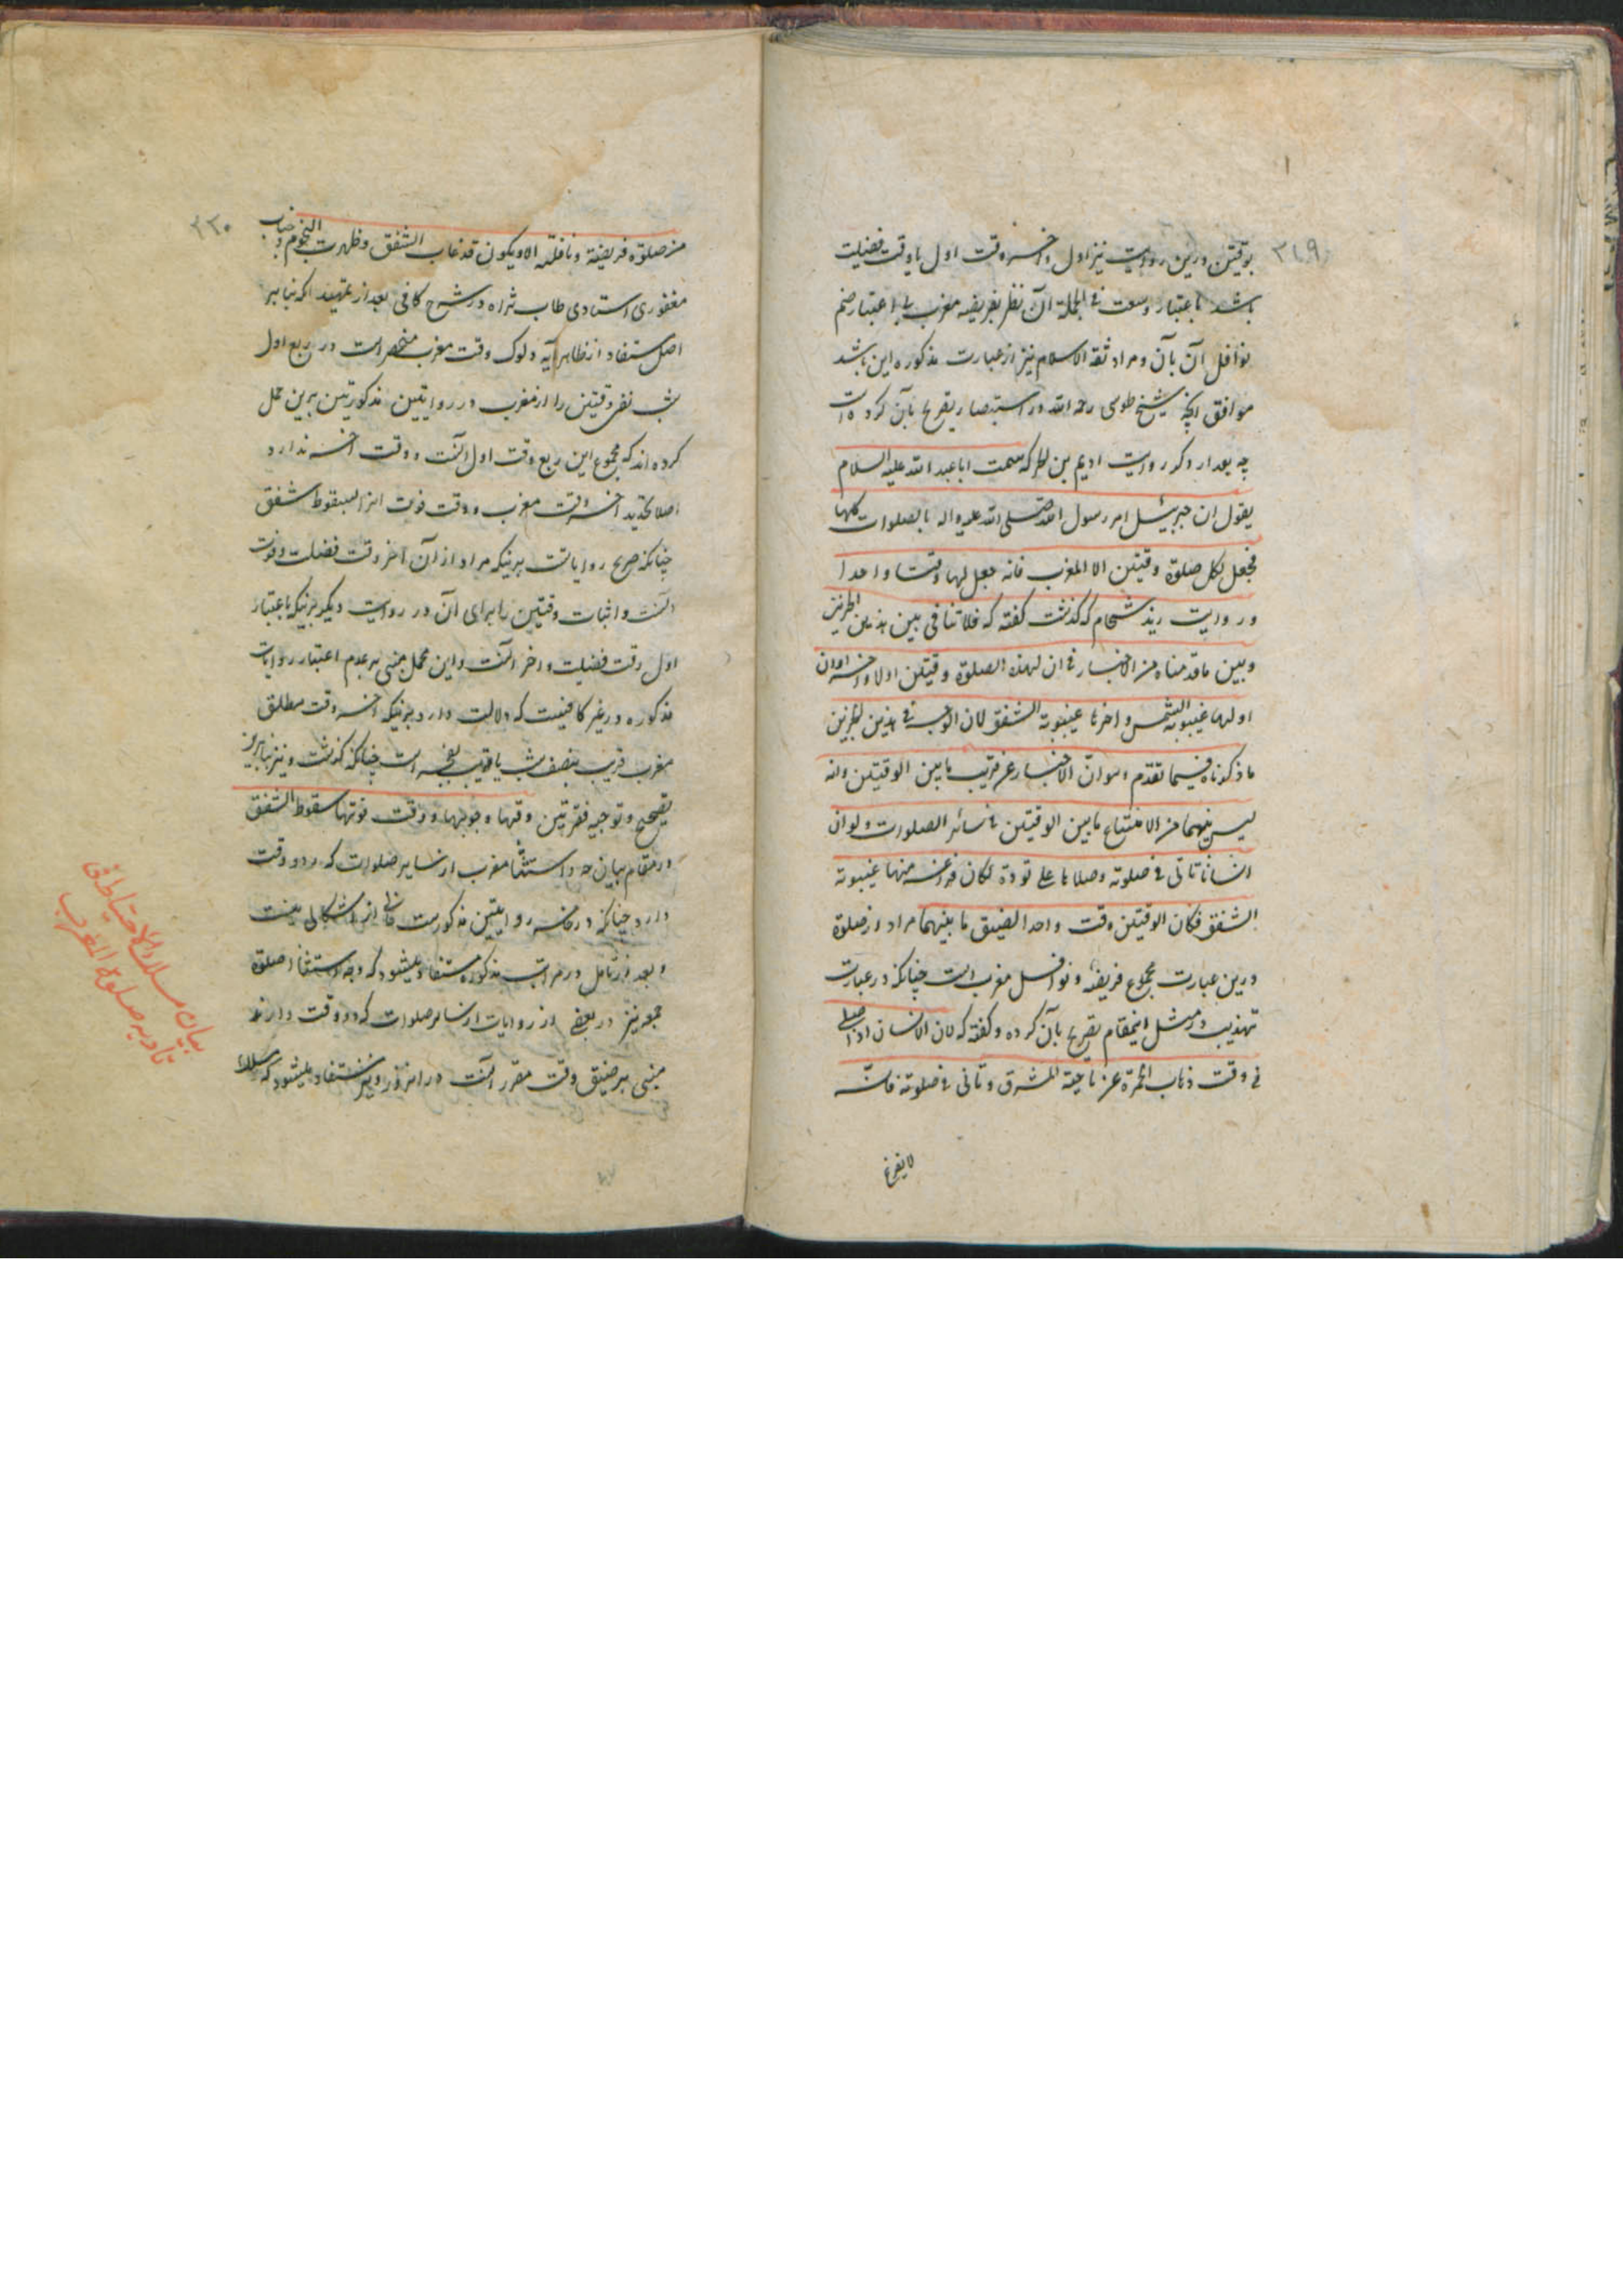 ٣١٩
بوقتین درین روایت نیز اول و آخر وقت اول یا وقت فضیلت
باشد باعتبار وسعت فی الجملة آن نظر بفریضه مغرب بی اعتبار ضم
نوافل آن بآن و مراد ثقة الاسلام نیز از عبارت مذکوره این باشد
موافق آنچه شیخ طوسی رحمه الله در استبصار تصریح بآن کرده است
چه بعد از ذکر روایت ادیم بن الحر که سمعت ابا عبد الله علیه السلام
یقول ان جبرئیل امر رسول الله صلی الله علیه واله بالصلوات کلها
فجعل لکل صلوة وقتین الا المغرب فانه جعل لها وقتا واحدا
و روایت زید شحام که گذشت گفته که فلا تنافی بین هذین الخبرین
وبین ما قدمناه من الاخبار فی ان لهذه الصلوة وقتین اولا واخرا وان
اولها غیبوبة الشمس واخرها غیبوبة الشفق لان الوجه فی هذین الخبرین
ما ذکرناه فیما تقدم وهو انّ الاخبار عن قرب ما بین الوقتین وانه
لیس بینهما من الاتساع ما بین الوقتین فی سائر الصلوات ولو ان
انسانا تأنی فی صلوته وصلاها علی تودة لکان فراغه منها غیبوبة
الشفق فکان الوقتین وقت واحد لضیق ما بینهما مراد از صلوة
درین عبارت مجموع فریضه و نوافل مغرب است چنانکه در عبارت
تهذیب در مثل اینمقام تصریح بآن کرده و گفته که لان الانسان اذا صلی
فی وقت ذهاب الحمرة عن ناحیة المشرق وتأنی فی صلوته فانّه
لا یفرغ
٣٢٠
من صلوة فریضة ونافلته الا ویکون قد غاب الشفق وظهرت النجوم و جناب
مغفوری استادی طاب ثراه در شرح کافی بعد از تمهید آنکه بنابر
اصل مستفاد از ظاهر آیه دلوک وقت مغرب منحصر است در ربع اول
شب نفی وقتین را از مغرب در روایتین مذکورتین برین حمل
کرده اند که مجموع این ربع وقت اول آنست و وقت آخر ندارد
اصلا تحدید آخر وقت مغرب و وقت فوت آنرا بسقوط شفق
چنانکه صریح روایاتست برینکه مراد از آن آخر وقت فضیلت وفوت
آنست و اثبات وقتین را برای آن در روایت دیگر برینکه باعتبار
اول وقت فضیلت و آخر آنست و این محمل مبنی بر عدم اعتبار روایات
مذکوره در غیر کافیست که دلالت دارد برینکه آخر وقت مطلق
مغرب قریب بنصف شب یا قریب بفجر است چنانکه گذشت و نیز بنابرین
تصحیح و توجیه فقرتین وقتها وجوبها و وقت فوتها سقوط الشفق
در مقام بیان حد و استثنا مغرب از سایر صلوات که دو وقت
دارد چنانکه در آخر روایتین مذکورست خالی از اشکالی نیست
و بعد از تأمل در مراتب مذکوره مستفاد میشود که وجه استثنا صلوة
جمعه نیز در بعضی از روایات از سایر صلوات که دو وقت دارند
مبنی بر ضیق وقت مقرر آنست در انروز و نیز مستفاد میشود که مسلک
بیان مسلک الاحتیاط فی
تادیه صلوة المغرب